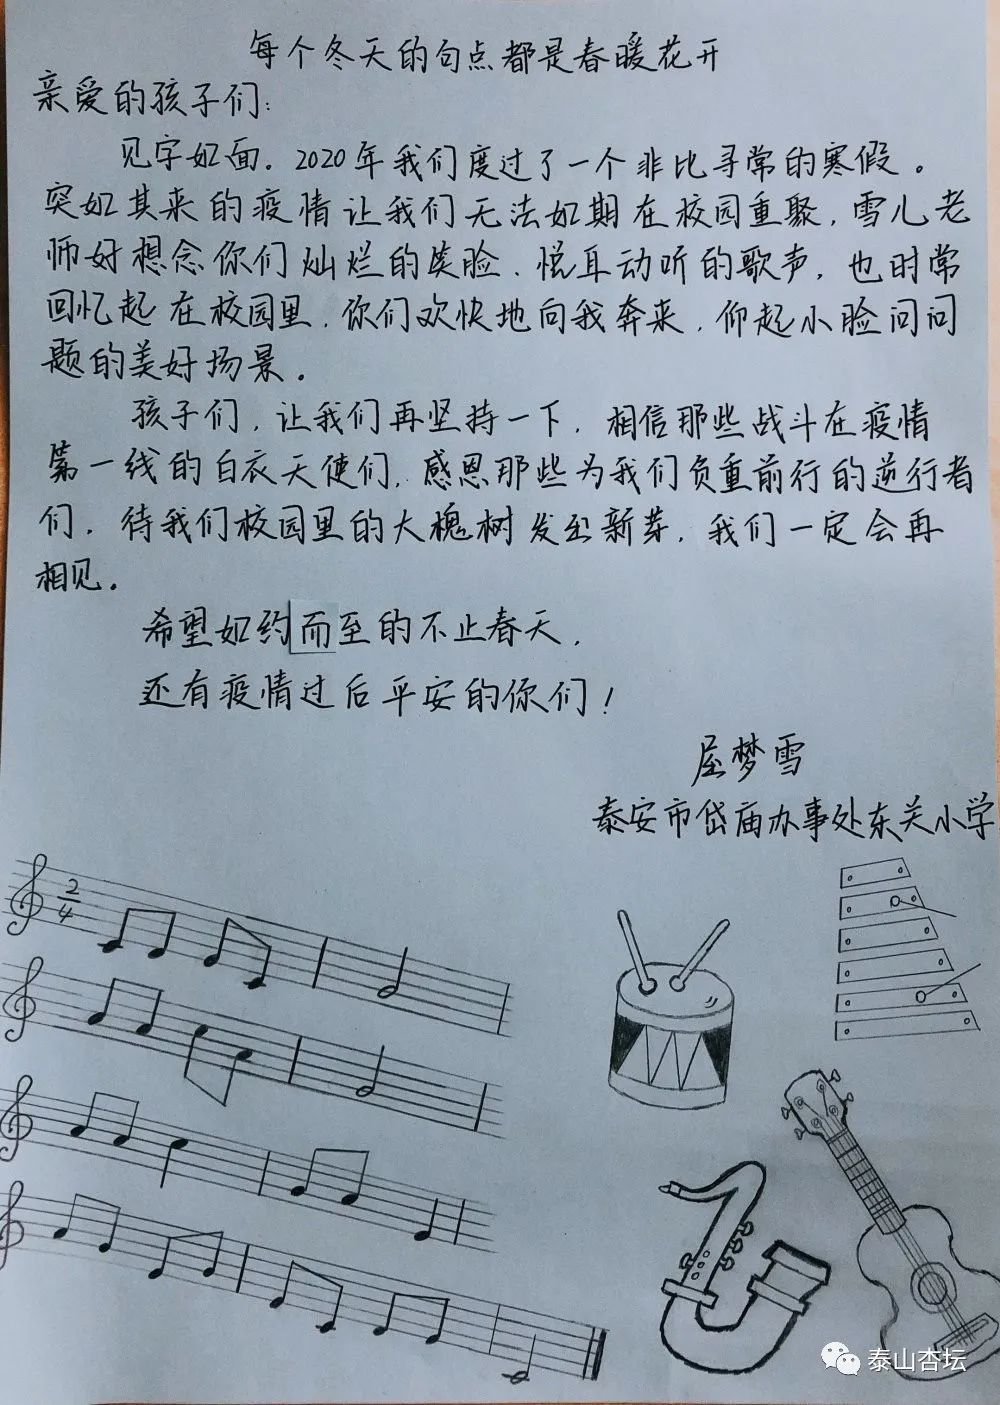 每个冬天的句点都是春暖花开
亲爱的孩子们：
见字如面。2020年我们度过了一个非比寻常的寒假。
突如其来的疫情让我们无法如期在校园重聚，雪儿老
师好想念你们灿烂的笑脸、悦耳动听的歌声，也时常
回忆起在校园里，你们欢快地向我奔来，仰起小脸问问
题的美好场景。
孩子们，让我们再坚持一下，相信那些战斗在疫情
第一线的白衣天使们，感恩那些为我们负重前行的逆行者
们，待我们校园里的大槐树发出新芽，我们一定会再
相见。
希望如约而至的不止春天，
还有疫情过后平安的你们！
屈梦雪
泰安市岱庙办事处东关小学
2
4
泰山杏坛